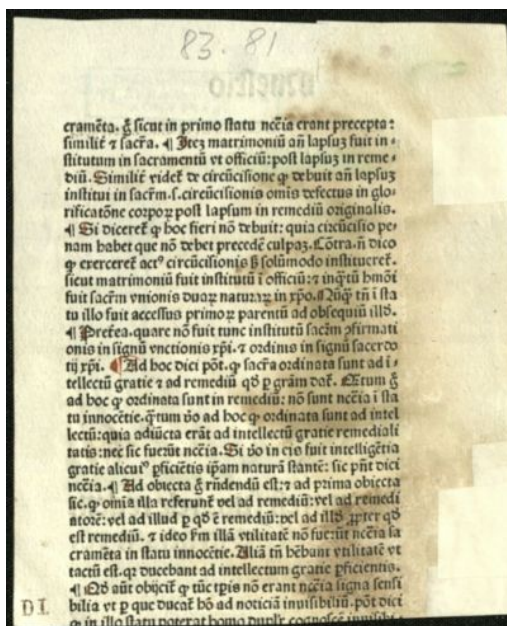 83.81
cramēta. ḡ sicut in primo statu nccīa erant precepta:
similit̄ ⁊ sacr̄a. ¶ Iteꝫ matrimoniū añ lapsuꝫ fuit in⸗
stitutum in sacramentū vt officiū: post lapsuꝫ in reme⸗
diū. Similit̄ videt̄ de circūcisione ꝙ debuit añ lapsuꝫ
institui in sacr̄m .s. circūcisionis omīs defectus in glo⸗
rificatōne corpoꝝ post lapsum in remediū originalis.
¶ Si diceret̄ ꝙ hoc fieri nō debuit: quia circūcisio pe⸗
nam habet que nō debet precedē culpaꝫ. Cōtra. ñ dico
ꝙ exerceret̄ actꝰ circūcisionis ß solūmodo institueret̄.
sicut matrimoniū fuit institutū ī officiū: ⁊ inq̄tū hmōi
fuit sacr̄m vnionis duaꝝ naturaꝝ in xp̄o. Nūq̄ tñ ī sta
tu illo fuit accessus primoꝝ parentū ad obsequiū illd̄.
¶ Preſ̄ea. quare nō fuit tunc institutū sacr̄m ꝯfirmati
onis in signū vnctionis xp̄i. ⁊ ordinis in signū sacerdo
tij xp̄i. ¶ Ad hoc dici pōt. ꝙ sacr̄a ordinata sunt ad i⸗
tellectū gratie ⁊ ad remediū qd̄ ꝑ grām dat̄. Q̄tum ḡ
ad hoc ꝙ ordinata sunt in remediū: nō sunt nccīa ī sta
tu innocētie. q̄tum v̄o ad hoc ꝙ ordinata sunt ad intel
lectū: quia adiūcta erāt ad intellectū gratie remediali
tatis: nec sic fuerūt nccīa. Si v̄o in eis fuit intelligētia
gratie alicuiꝰ ꝑficiētis ip̄am naturā stantē: sic pñt dici
nccīa. ¶ Ad obiecta ḡ rñdendū est: ⁊ ad prima obiecta
sic. ꝙ omīa illa referunt̄ vel ad remediū: vel ad remedi
atorē: vel ad illud ꝑ qd̄ ē remediū: vel ad illd̄ ꝓpter qd̄
est remediū. ⁊ ideo ẜm illā vtilitatē nō fuerūt nccīa sa
cramēta in statu innocētie. Aliā tñ hēbunt vtilitatē vt
tactū est. qꝛ ducebant ad intellectum gratie ꝑficientis.
¶ Qd̄ aūt obijcit̄ ꝙ tūc tp̄is nō erant nccīa signa sensi
bilia vt ꝑ que ducat̄ hō ad noticiā inuisibiliū. pōt dici
ꝙ in illo statu poterat homo duplr̄ cognoscē inuisibi⸗
D I.